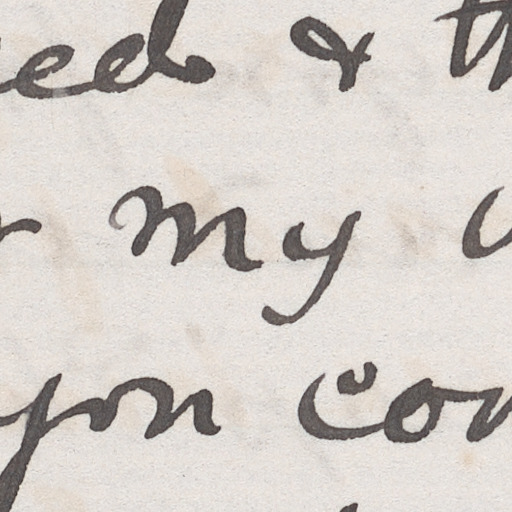 eed & th
my
you con